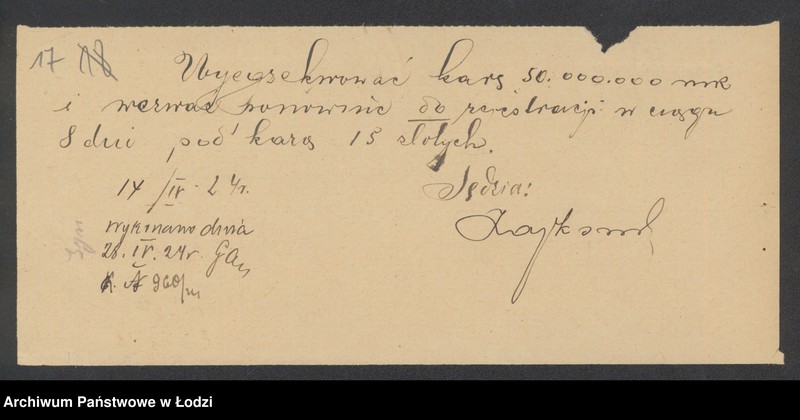 17
Wyegzekwować karę 50.000.000 mk
i wezwać ponownie do rejestracji w ciągu
8 dni pod karą 15 złotych.
14/IV. 24r.
Sędzia:
Wykonano dnia
28. IV. 24r.
960/
Archiwum Państwowe w Łodzi